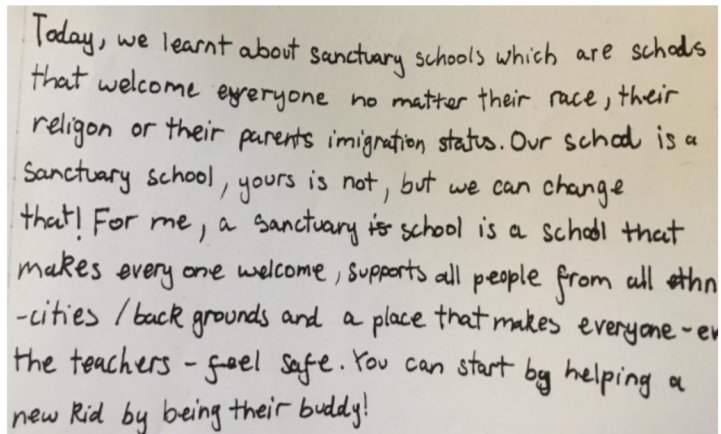 Today, we learnt about sanctuary schools which are schools
that welcome everyone no matter their race, their
religon or their parents imigration status. Our school is a
Sanctuary school, yours is not, but we can change
that! For me, a sanctuary is school is a school that
makes every one welcome, supports all people from all ethn
-cities / back grounds and a place that makes everyone - ev
the teachers - feel safe. You can start by helping a
new kid by being their buddy!